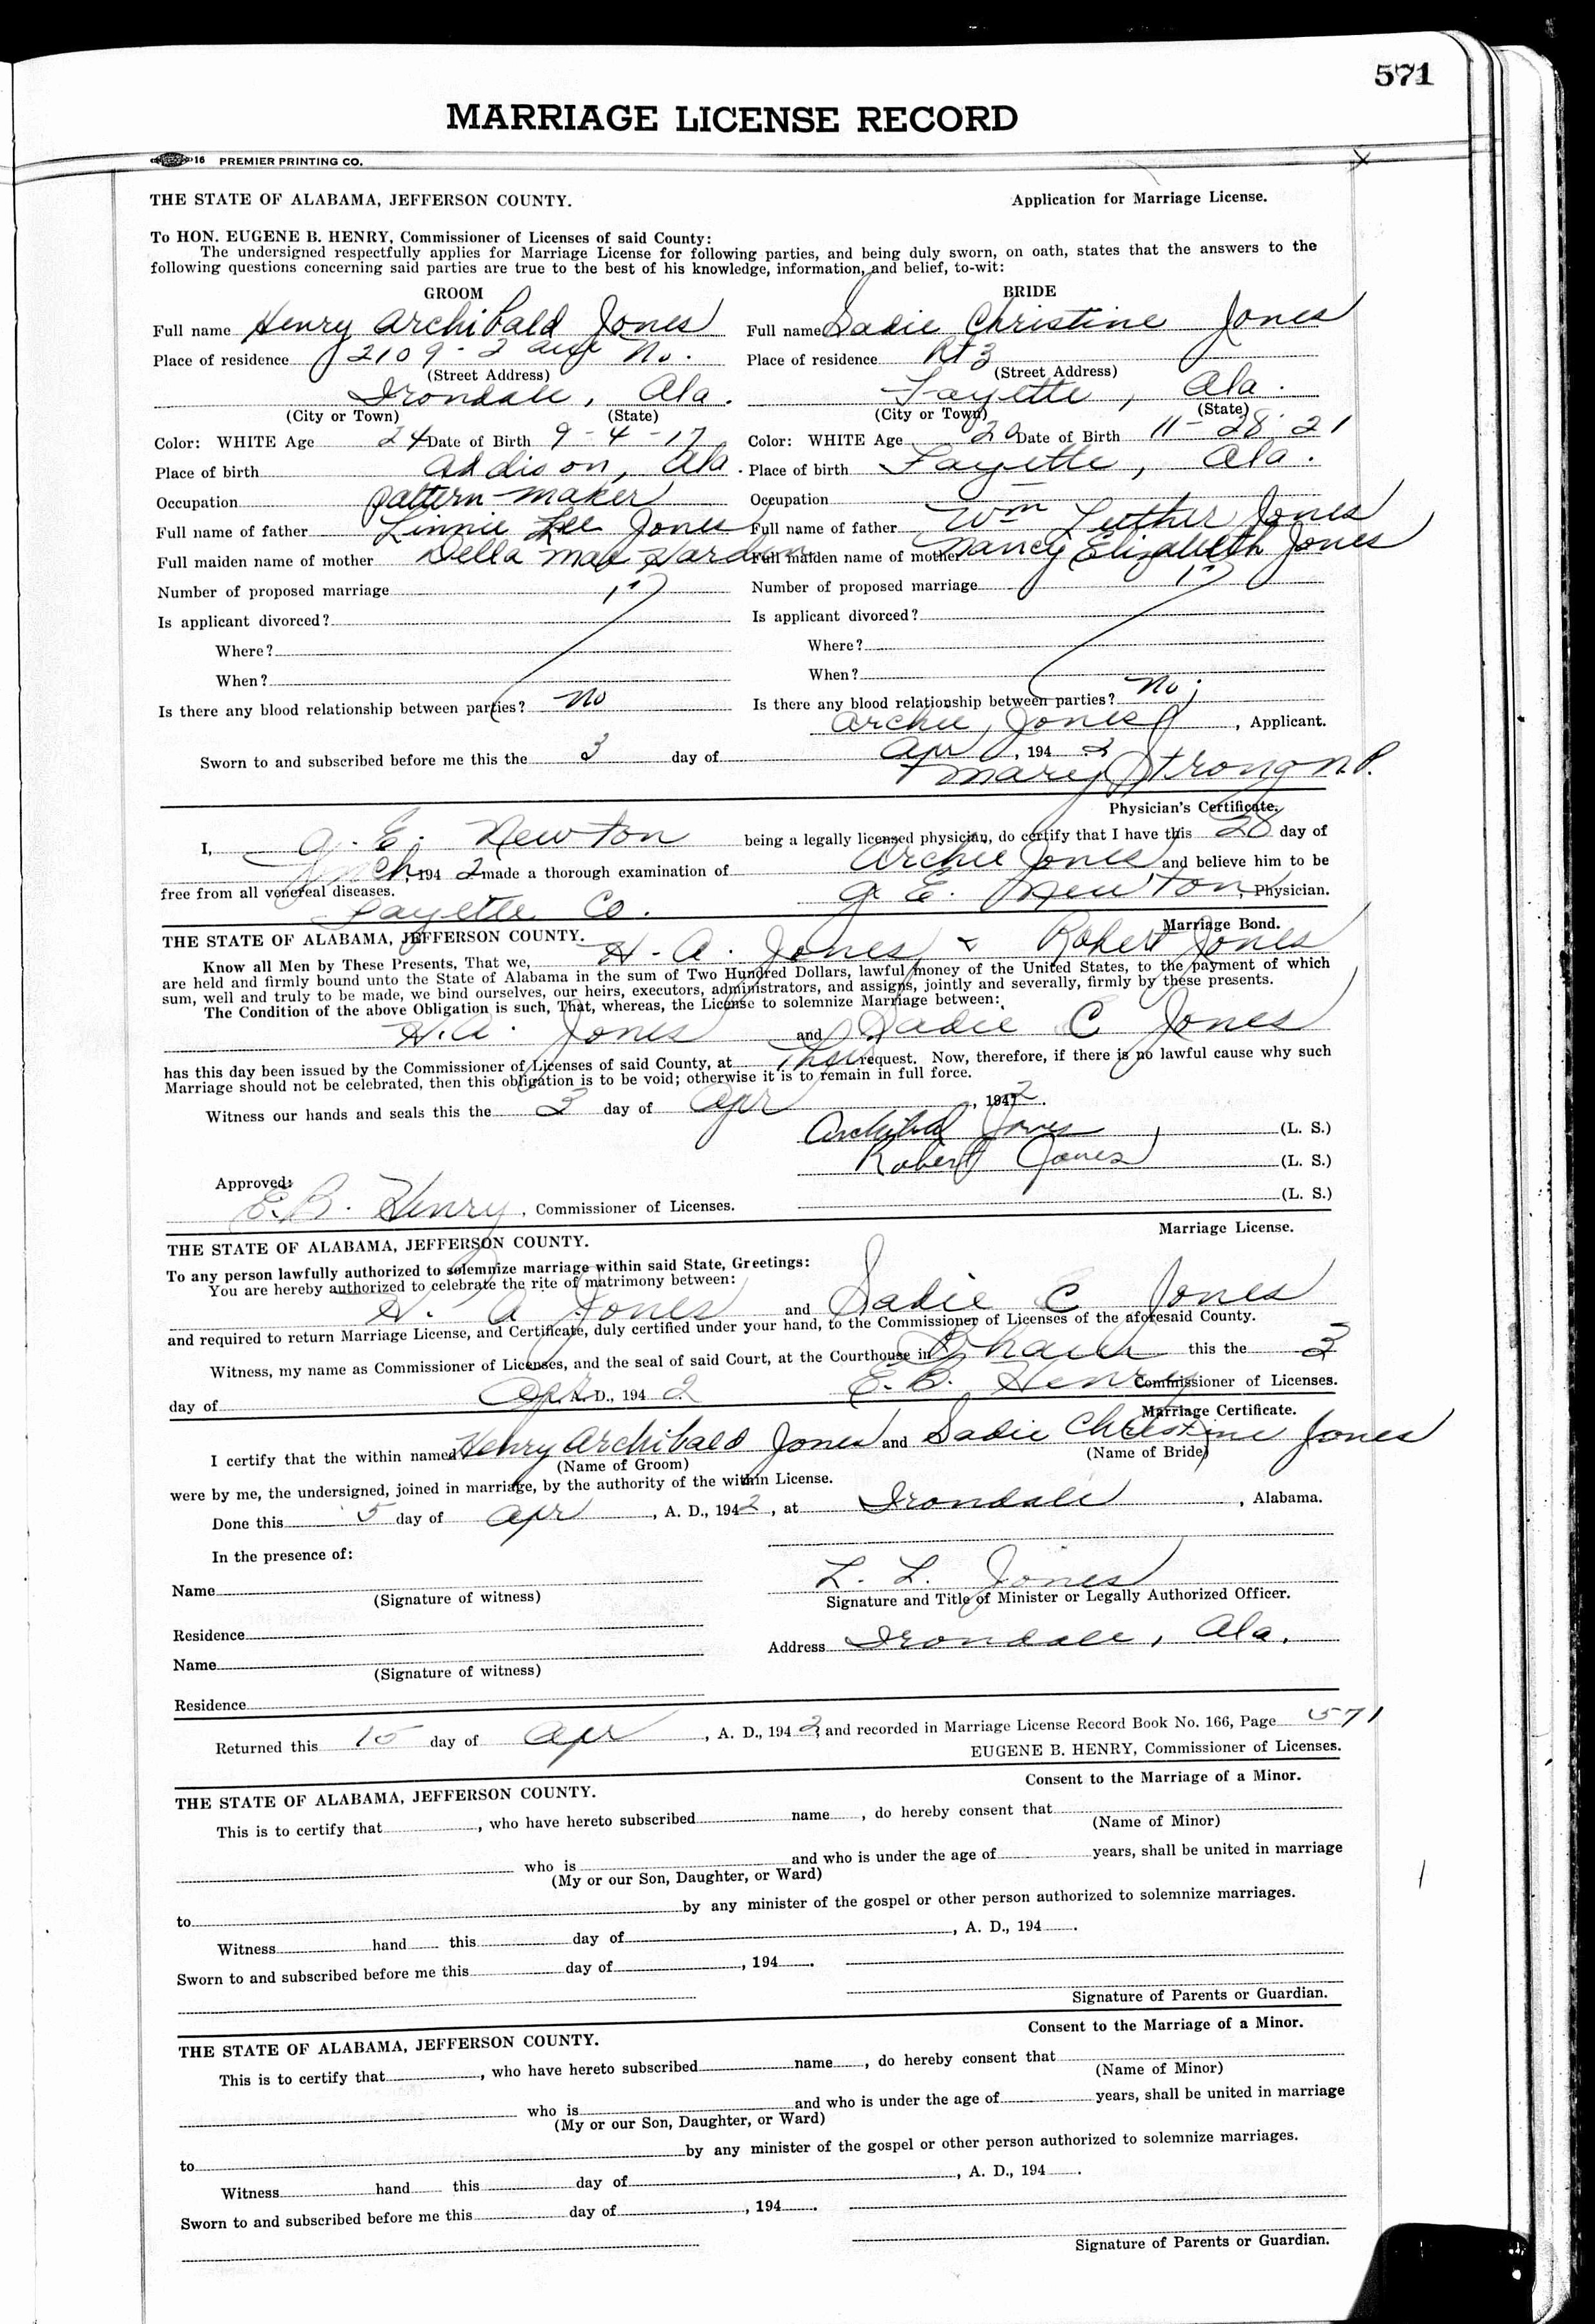 571
MARRIAGE LICENSE RECORD
16 PREMIER PRINTING CO.
THE STATE OF ALABAMA, JEFFERSON COUNTY. Application for Marriage License.
To HON. EUGENE B. HENRY, Commissioner of Licenses of said County:
The undersigned respectfully applies for Marriage License for following parties, and being duly sworn, on oath, states that the answers to the
following questions concerning said parties are true to the best of his knowledge, information, and belief, to-wit:
GROOM BRIDE
Full name Henry Archibald Jones Full name Sadie Christine Jones
Place of residence 2109 - 2 ave No. Place of residence Rt 3
(Street Address) (Street Address)
Irondale, Ala. Fayette, Ala.
(City or Town) (State) (City or Town) (State)
Color: WHITE Age 24 Date of Birth 9-4-17 Color: WHITE Age 20 Date of Birth 11-28-21
Place of birth Addison, Ala. Place of birth Fayette, Ala.
Occupation pattern-maker Occupation
Full name of father Linnie Lee Jones Full name of father Wm Luther Jones
Full maiden name of mother Della Mae Full maiden name of mother Nancy Elizabeth Jones
Number of proposed marriage 1 Number of proposed marriage 1
Is applicant divorced? Is applicant divorced?
Where? Where?
When? When?
Is there any blood relationship between parties? No Is there any blood relationship between parties? No
Archie Jones, Applicant.
Sworn to and subscribed before me this the 3 day of Apr, 194 2
Mary Strong N.P.
Physician's Certificate.
I, G. E. Newton being a legally licensed physician, do certify that I have this 28 day of
Mch, 194 2 made a thorough examination of Archie Jones and believe him to be
free from all venereal diseases. G. E. Newton, Physician.
Fayette Co.
Marriage Bond.
THE STATE OF ALABAMA, JEFFERSON COUNTY.
Know all Men by These Presents, That we, H. A. Jones & Robert Jones
are held and firmly bound unto the State of Alabama in the sum of Two Hundred Dollars, lawful money of the United States, to the payment of which
sum, well and truly to be made, we bind ourselves, our heirs, executors, administrators, and assigns, jointly and severally, firmly by these presents.
The Condition of the above Obligation is such, That, whereas, the License to solemnize Marriage between:
H. A. Jones and Sadie C Jones
has this day been issued by the Commissioner of Licenses of said County, at their request. Now, therefore, if there is no lawful cause why such
Marriage should not be celebrated, then this obligation is to be void; otherwise it is to remain in full force.
Witness our hands and seals this the 3 day of Apr, 1942.
Archibald Jones (L. S.)
Robert Jones (L. S.)
Approved:
E. B. Henry, Commissioner of Licenses. (L. S.)
Marriage License.
THE STATE OF ALABAMA, JEFFERSON COUNTY.
To any person lawfully authorized to solemnize marriage within said State, Greetings:
You are hereby authorized to celebrate the rite of matrimony between:
H. A Jones and Sadie C Jones
and required to return Marriage License, and Certificate, duly certified under your hand, to the Commissioner of Licenses of the aforesaid County.
Witness, my name as Commissioner of Licenses, and the seal of said Court, at the Courthouse in Bham this the 3
day of Apr. A. D., 194 2 E. B. Henry Commissioner of Licenses.
Marriage Certificate.
I certify that the within named Henry Archibald Jones and Sadie Christine Jones
(Name of Groom) (Name of Bride)
were by me, the undersigned, joined in marriage, by the authority of the within License.
Done this 5 day of Apr, A. D., 1942, at Irondale, Alabama.
In the presence of:
Name L. L. Jones
(Signature of witness) Signature and Title of Minister or Legally Authorized Officer.
Residence Address Irondale, Ala.
Name
(Signature of witness)
Residence
Returned this 15 day of Apr, A. D., 194 2, and recorded in Marriage License Record Book No. 166, Page 571
EUGENE B. HENRY, Commissioner of Licenses.
Consent to the Marriage of a Minor.
THE STATE OF ALABAMA, JEFFERSON COUNTY.
This is to certify that , who have hereto subscribed name , do hereby consent that
(Name of Minor)
who is and who is under the age of years, shall be united in marriage
(My or our Son, Daughter, or Ward)
to by any minister of the gospel or other person authorized to solemnize marriages.
Witness hand this day of , A. D., 194 .
Sworn to and subscribed before me this day of , 194 .
Signature of Parents or Guardian.
Consent to the Marriage of a Minor.
THE STATE OF ALABAMA, JEFFERSON COUNTY.
This is to certify that , who have hereto subscribed name , do hereby consent that
(Name of Minor)
who is and who is under the age of years, shall be united in marriage
(My or our Son, Daughter, or Ward)
to by any minister of the gospel or other person authorized to solemnize marriages.
Witness hand this day of , A. D., 194 .
Sworn to and subscribed before me this day of , 194 .
Signature of Parents or Guardian.